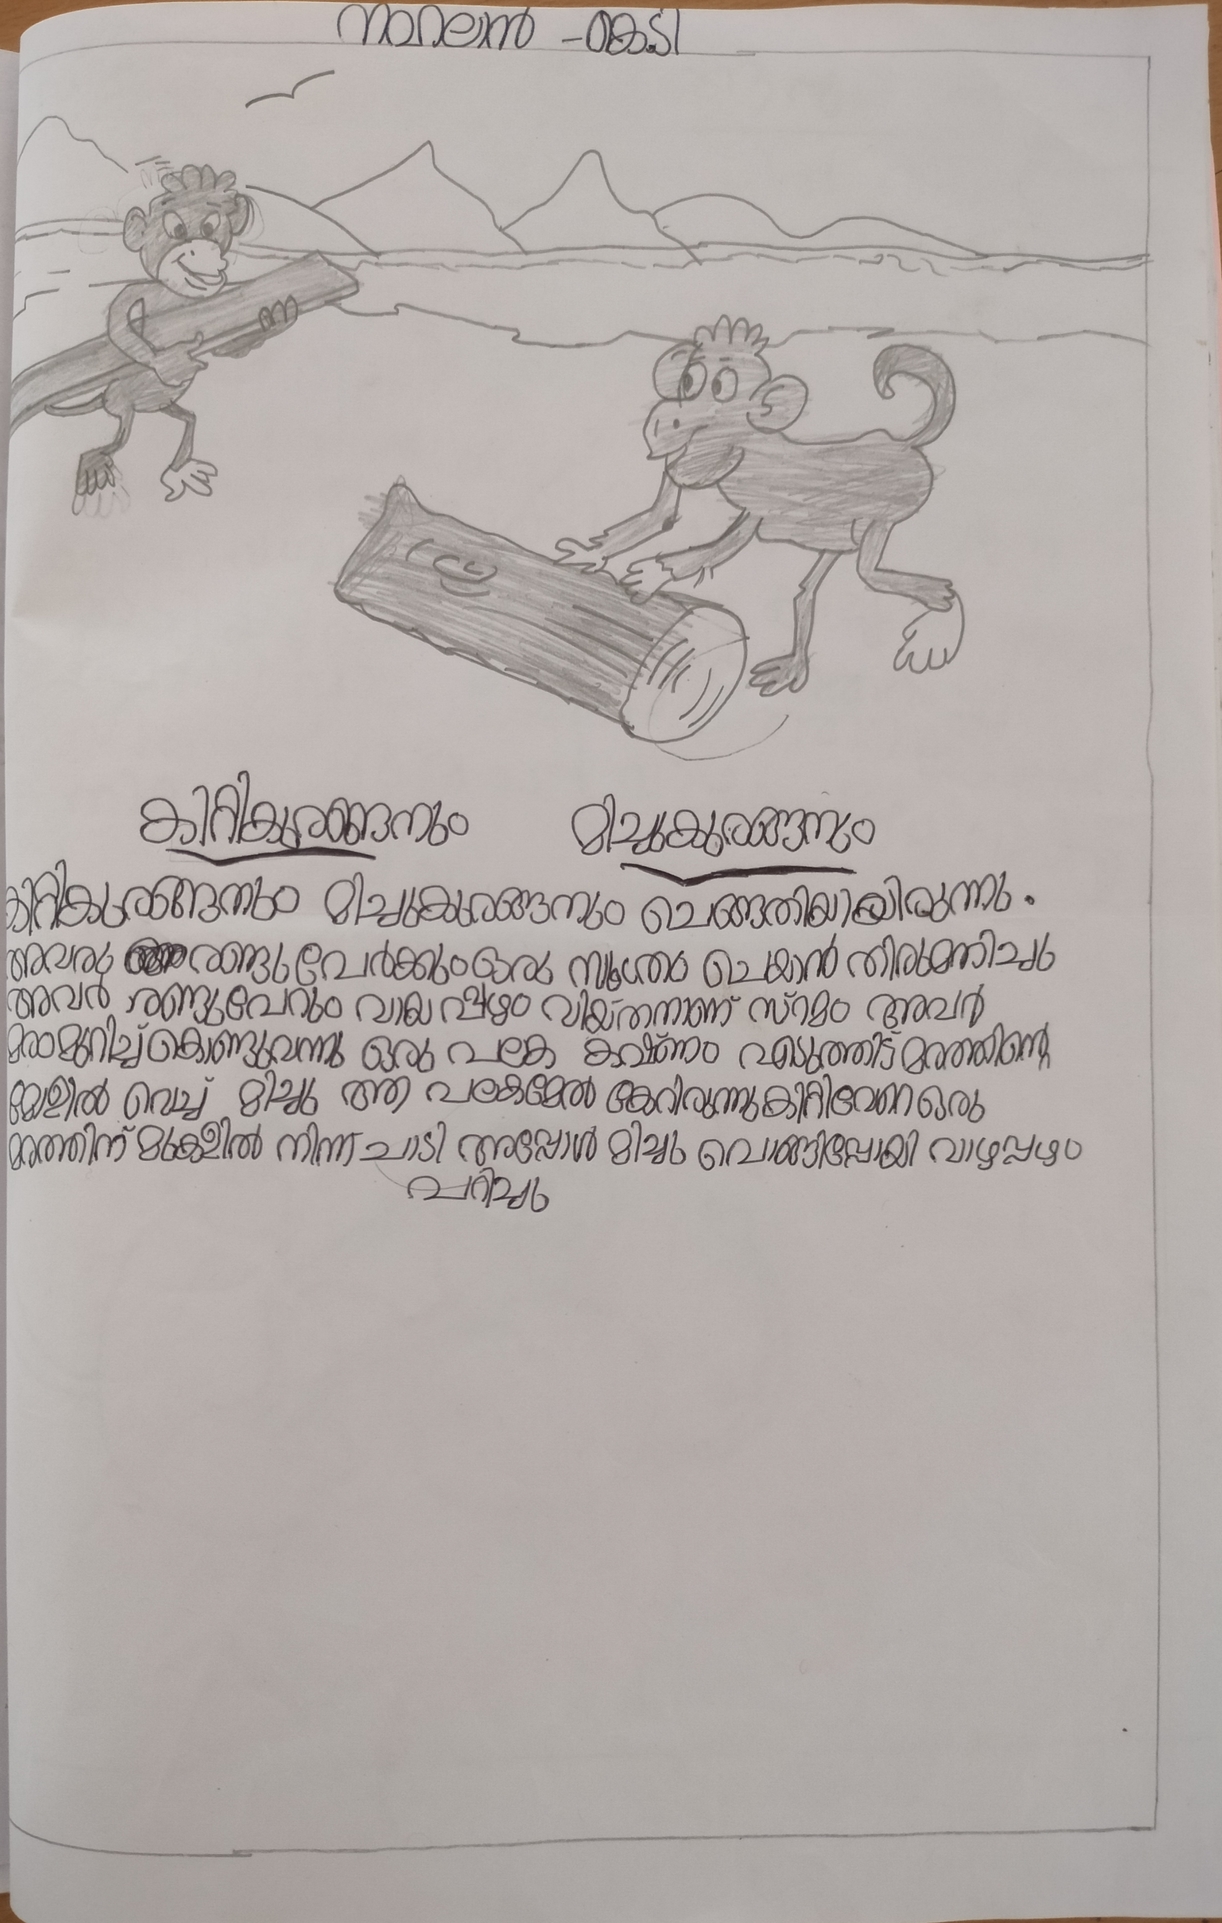 കിറ്റികുരങ്ങനും മിച്ചുകുരങ്ങനും
കിറ്റികുരങ്ങനും മിച്ചുകുരങ്ങനും ചെങ്ങതിയായിരുന്നു.
അവരു രണ്ടുപേർക്കും ഒരു സൂത്രം ചെയാൻ തിരുമാനിച്ചു
അവർ രണ്ടുപേറും വായ പ്പഴം അവർ
മരംമുറിച്ച് കൊണ്ടുവന്നു ഒരു പലക കഷ്ണം എടുത്തിട്ട് മരത്തിന്റെ
മേളിൽ വെച്ച് മിച്ചു ആ പലകമേൽ കേറിരുന്നു ഒരു
മരത്തിന് മുകളിൽ നിന്ന് ചാടി അപ്പോൾ മിച്ചു പൊങ്ങിപ്പോയി വാഴപ്പഴം
പറിച്ചു